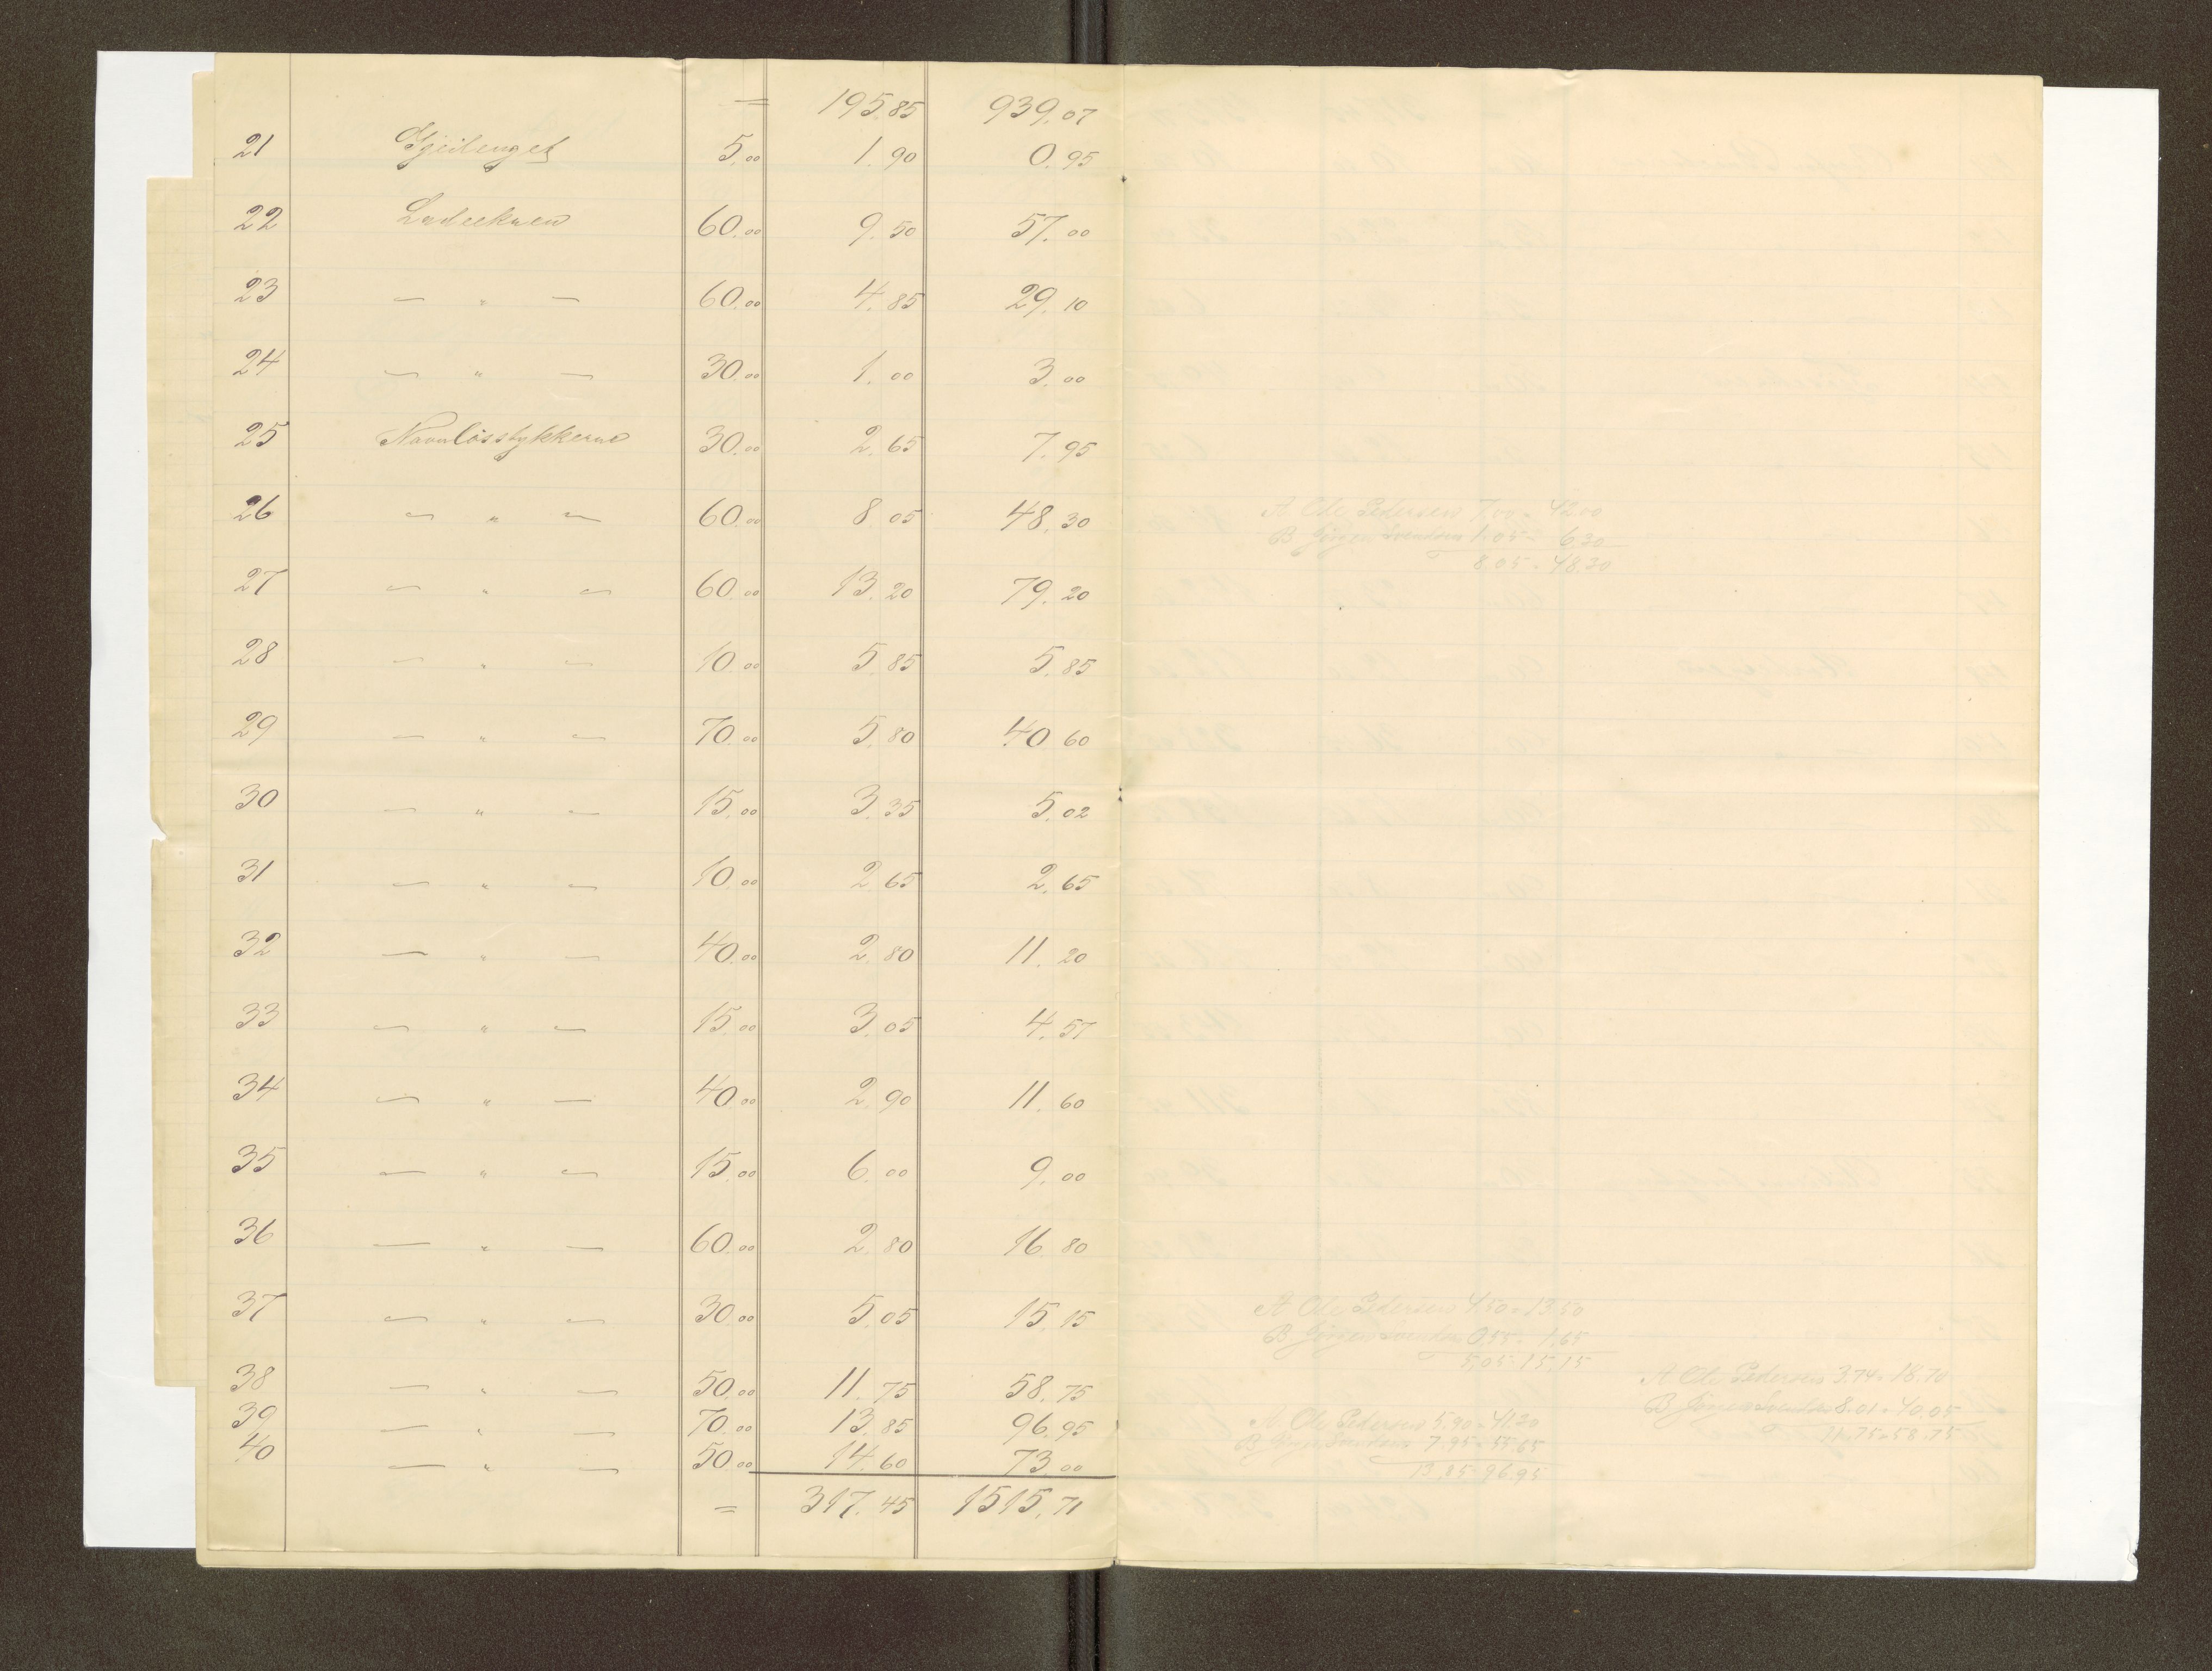 = 195.85 939.07
21 Gjeilenget 5.00 1.90 0.95
22 Ladeekren 60.00 9.50 57.00
23 — " — 60.00 4.85 29.10
24 — " — 30.00 1.00 3.00
25 Navnlösstykkerne 30.00 2.65 7.95
26 — " — 60.00 8.05 48.30
27 — " — 60.00 13.20 79.20
28 — " — 10.00 5.85 5.85
29 — " — 70.00 5.80 40.60
30 — " — 15.00 3.35 5.02
31 — " — 10.00 2.65 2.65
32 — " — 40.00 2.80 11.20
33 — " — 15.00 3.05 4.57
34 — " — 40.00 2.90 11.60
35 — " — 15.00 6.00 9.00
36 — " — 60.00 2.80 16.80
37 — " — 30.00 5.05 15.15
38 — " — 50.00 11.75 58.75
39 — " — 70.00 13.85 96.95
40 — " — 50.00 14.60 73.00
= 317.45 1515.71
A Ole Pedersen 7.00 = 42.00
B Jörgen Svendsen 1.05 = 6.30
8.05 = 48.30
A Ole Pedersen 4.50 = 13.50
B Jörgen Svendsen 0.55 = 1.65
5.05 = 15.15
A Ole Pedersen 3.74 = 18.70
B Jörgen Svendsen 8.01 = 40.05
11.75 = 58.75
A. Ole Pedersen 5.90 = 41.30
B. Jörgen Svendsen 7.95 = 55.65
13.85 = 96.95